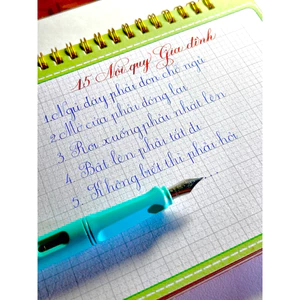 15 Nội quy Gia đình
1. Ngủ dậy phải dọn chỗ ngủ
2. Mở cửa phải đóng lại
3. Rơi xuống phải nhặt lên
4. Bật lên phải tắt đi
5. Không biết thì phải hỏi